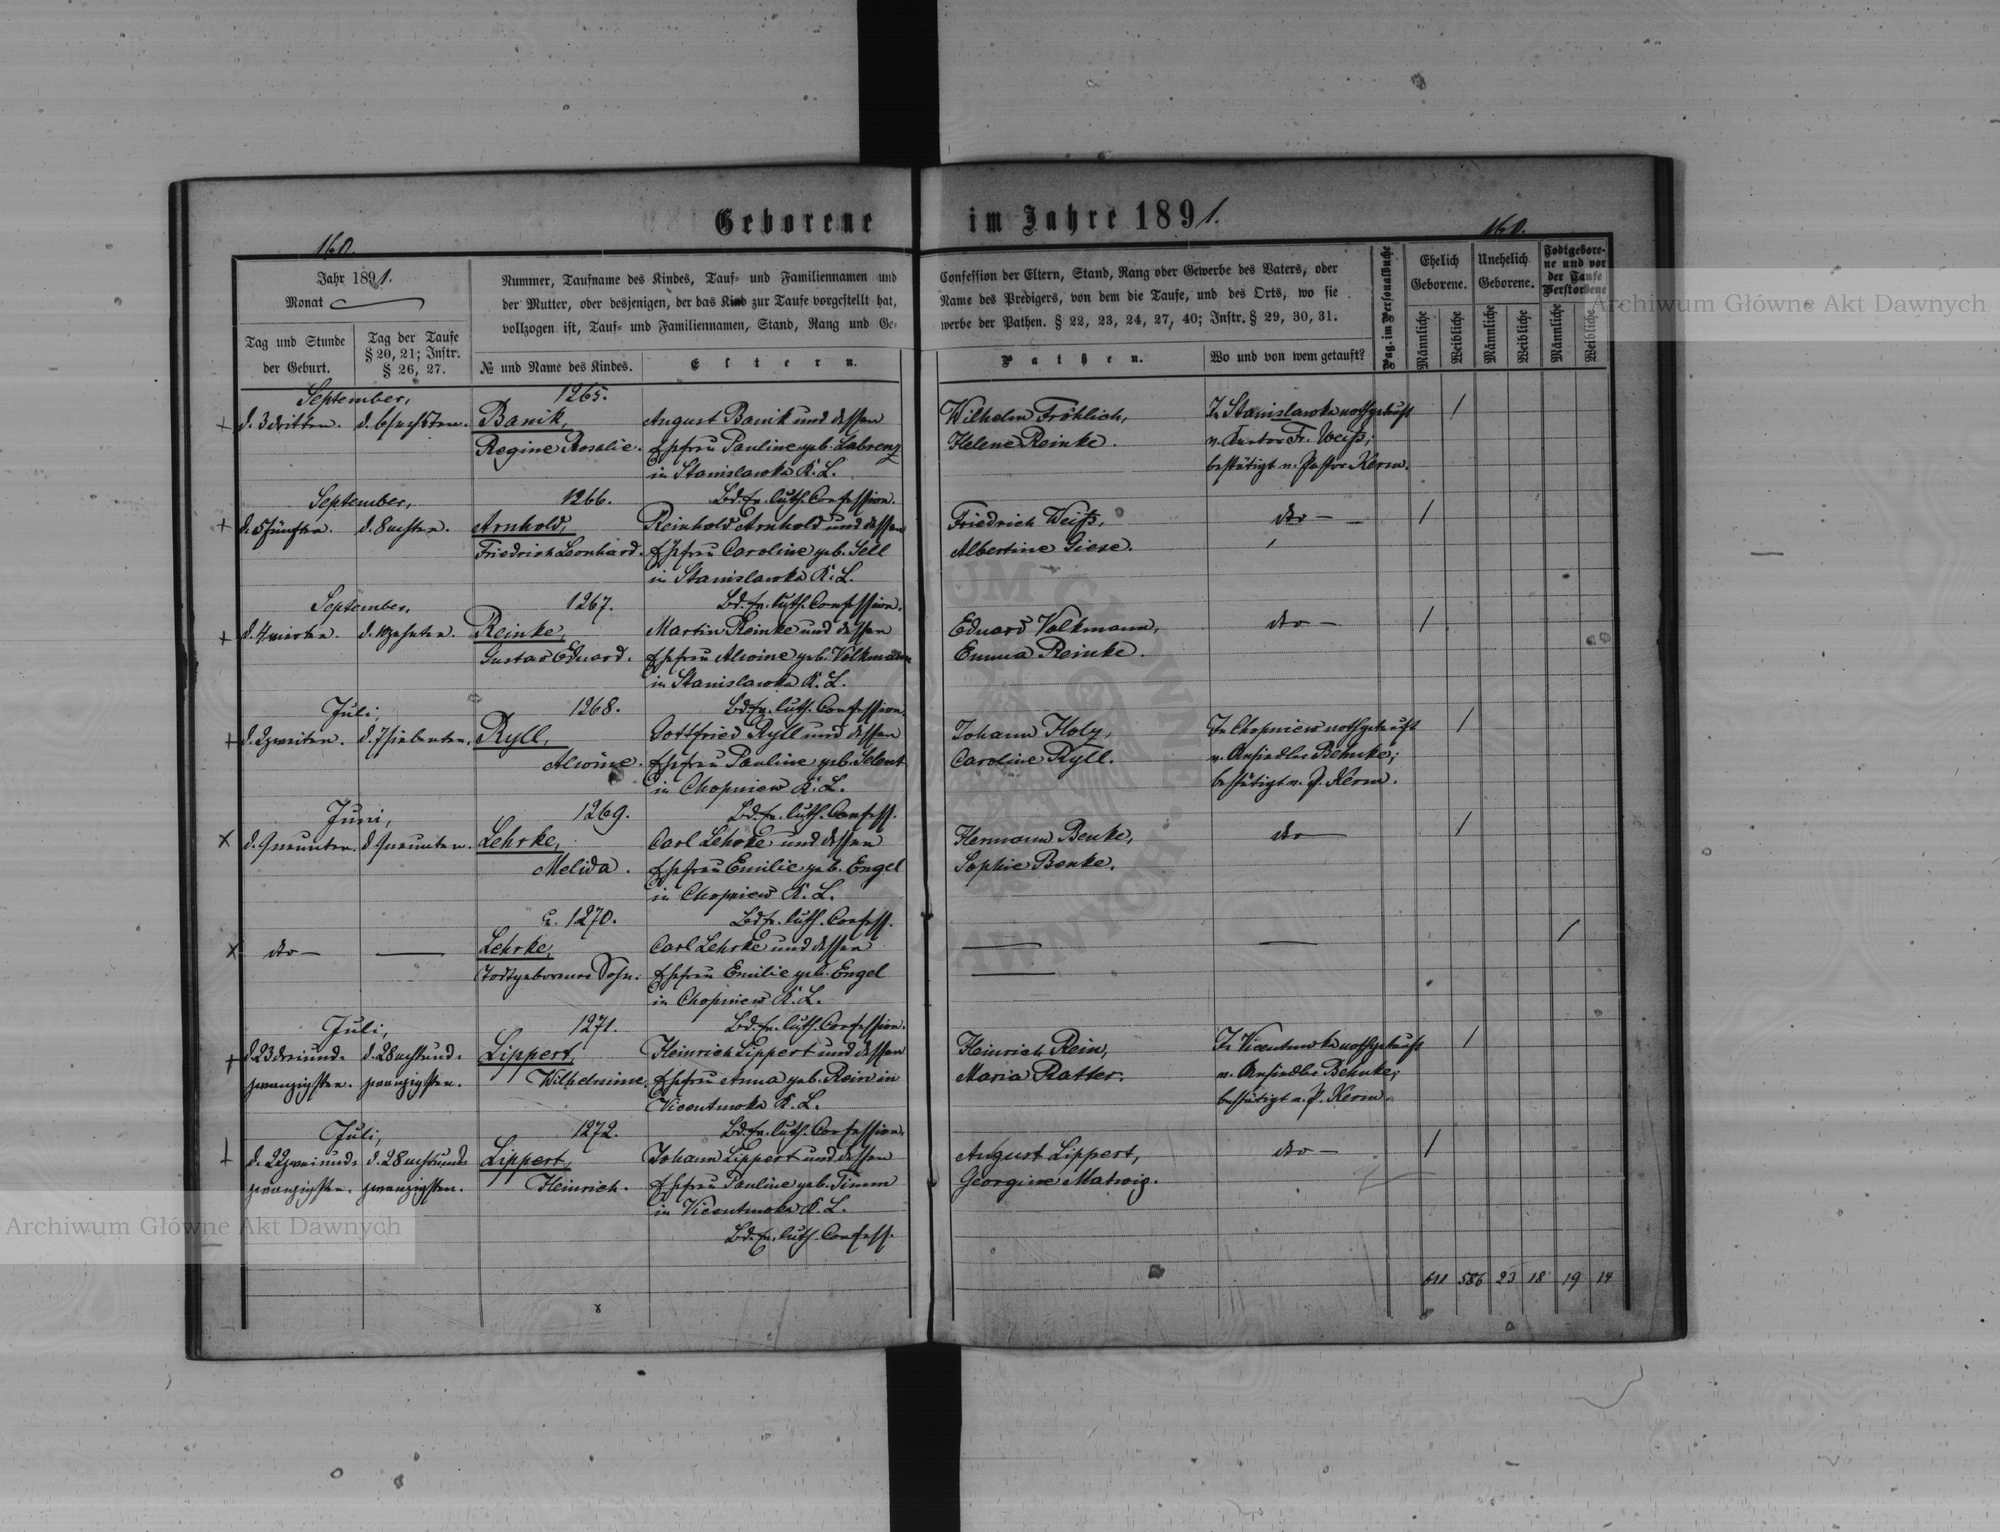 Geborene im Jahre 1891.
160.
160.
Jahr 1891.
Monat
Tag und Stunde
der Geburt.
Tag der Taufe
§ 20, 21; Instr.
§ 26, 27.
Nummer, Taufname des Kindes, Tauf- und Familiennamen und
der Mutter, oder desjenigen, der das Kind zur Taufe vorgestellt hat,
vollzogen ist, Tauf- und Familiennamen, Stand, Rang und Ge-
№ und Name des Kindes.
Eltern.
Confession der Eltern, Stand, Rang oder Gewerbe des Vaters, oder
Name des Predigers, von dem die Taufe, und des Orts, wo sie
werbe der Pathen. § 22, 23, 24, 27, 40; Instr. § 29, 30, 31.
Pathen.
Wo und von wem getauft?
Pag. im Personalbuche
Ehelich
Geborene.
Unehelich
Geborene.
Todtgebore-
ne und vor
der Taufe
Verstorbene
Männliche
Weibliche
Männliche
Weibliche
Männliche
Weibliche
September,
1265.
d. 3 dritten.
d. 6 sechsten.
Banik,
Regine Rosalie.
August Banik und dessen
Ehefrau Pauline geb. Labrenz
in Stanislawka K. L.
Bd. ev. luth. Confession.
Wilhelm Fröhlich,
Helene Reinke.
In Stanislawka nothgetauft
v. Kantor Fr. Weiß;
bestätigt v. Pastor Kerm.
September,
1266.
d. 5 fünften.
d. 8 achten.
Arnhold,
Friedrich Leonhard.
Reinhold Arnhold und dessen
Ehefrau Caroline geb. Sell
in Stanislawka K. L.
Bd. ev. luth. Confession.
Friedrich Weiß,
Albertine Giese.
dto —
September,
1267.
d. 4 vierten.
d. 10 zehnten.
Reinke,
Gustav Eduard.
Martin Reinke und dessen
Ehefrau Alwine geb. Volkmann
in Stanislawka K. L.
Bd. ev. luth. Confession.
Eduard Volkmann,
Emma Reinke.
dto —
Juli,
1268.
d. 2 zweiten.
d. 7 siebenten.
Ryll,
Alwine.
Gottfried Ryll und dessen
Ehefrau Pauline geb. Selent
in Chopniew K. L.
Bd. ev. luth. Confess.
Johann Holz,
Caroline Ryll.
In Chopniew nothgetauft
v. Ansiedler Behnke;
bestätigt v. P. Kerm.
Juni,
1269.
d. 9 neunten.
d. 9 neunten.
Lehrke,
Melida.
Carl Lehrke und dessen
Ehefrau Emilie geb. Engel
in Chopniew K. L.
Bd. ev. luth. Confess.
Hermann Benke,
Sophie Benke.
dto —
1270.
dto —
Lehrke,
Todtgeborener Sohn.
Carl Lehrke und dessen
Ehefrau Emilie geb. Engel
in Chopniew K. L.
Bd. ev. luth. Confession.
Juli,
1271.
d. 23 dreiund-
zwanzigsten.
d. 28 achtund-
zwanzigsten.
Lippert,
Wilhelmine.
Heinrich Lippert und dessen
Ehefrau Anna geb. Rein in
Vicentmoka K. L.
Bd. ev. luth. Confession.
Heinrich Rein,
Maria Ratter.
In Vicentmoka nothgetauft
v. Ansiedler Behnke;
bestätigt v. P. Kerm.
Juli,
1272.
d. 22 zweiund-
zwanzigsten.
d. 28 achtund-
zwanzigsten.
Lippert,
Heinrich.
Johann Lippert und dessen
Ehefrau Pauline geb. Timm
in Vicentmoka K. L.
Bd. ev. luth. Confess.
August Lippert,
Georgine Matwig.
dto —
611 586 23 18 19 14
Archiwum Główne Akt Dawnych
Archiwum Główne Akt Dawnych